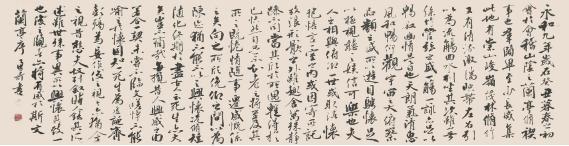 永和九年歲在癸丑暮春之初
會于會稽山陰之蘭亭脩禊
事也羣賢畢至少長咸集
此地有崇山峻嶺茂林脩竹
又有清流激湍暎帶左右引
以為流觴曲水列坐其次雖無
絲竹管弦之盛一觴一詠亦足以
暢敘幽情是日也天朗氣清惠
風和暢仰觀宇宙之大俯察
品類之盛所以遊目騁懷足
以極視聽之娛信可樂也夫
人之相與俯仰一世或取諸懷
抱悟言一室之內或因寄所託
放浪形骸之外雖趣舍萬殊靜
躁不同當其欣於所遇暫得於
己快然自足不知老之將至及其
所之既惓情隨事遷感慨係
之矣向之所欣俛仰之間以為
陳迹猶不能不以之興懷況脩短
隨化終期於盡古人云死生亦大
矣豈不痛哉每攬昔人興感之由
若合一契未嘗不臨文嗟悼不能
喻之於懷固知一死生為虛誕齊
彭殤為妄作後之視今亦猶今
之視昔悲夫故列敘時人錄其
所述雖世殊事異所以興懷其致一
也後之覽者亦將有感於斯文
蘭亭序